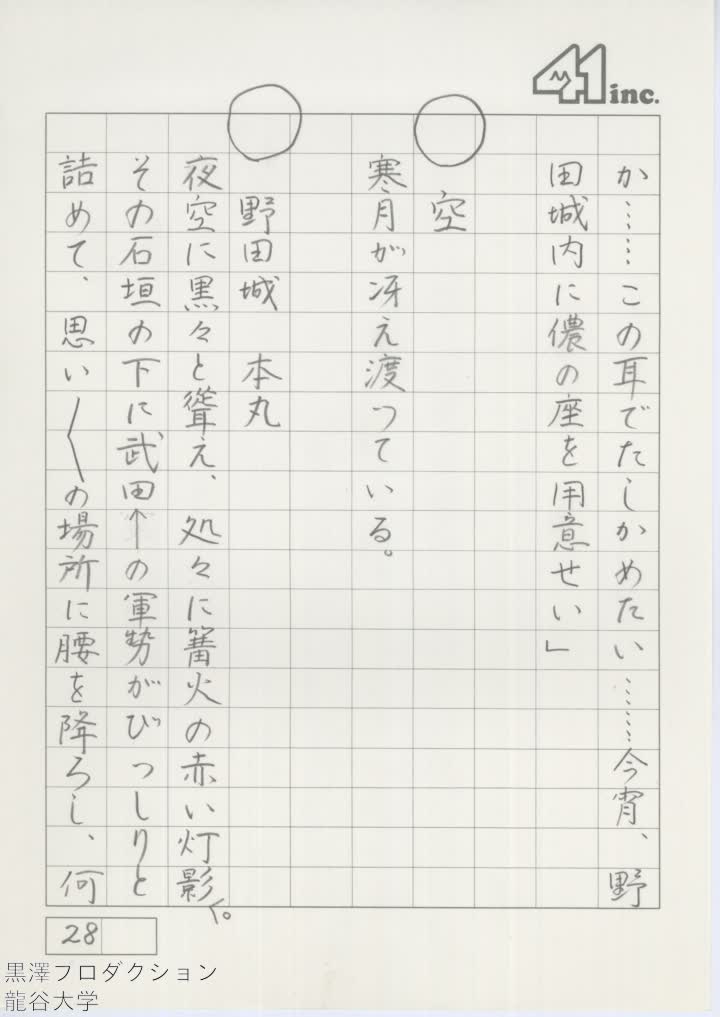 41 inc.
か……この耳でたしかめたい……今宵、野
田城内に儂の座を用意せい」
○　空
寒月が冴え渡つている。
○　野田城　本丸
夜空に黒々と聳え、処々に篝火の赤い灯影。
その石垣の下に武田↑の軍勢がびっしりと
詰めて、思い〳〵の場所に腰を降ろし、何
28
黒澤フロダクション
龍谷大学